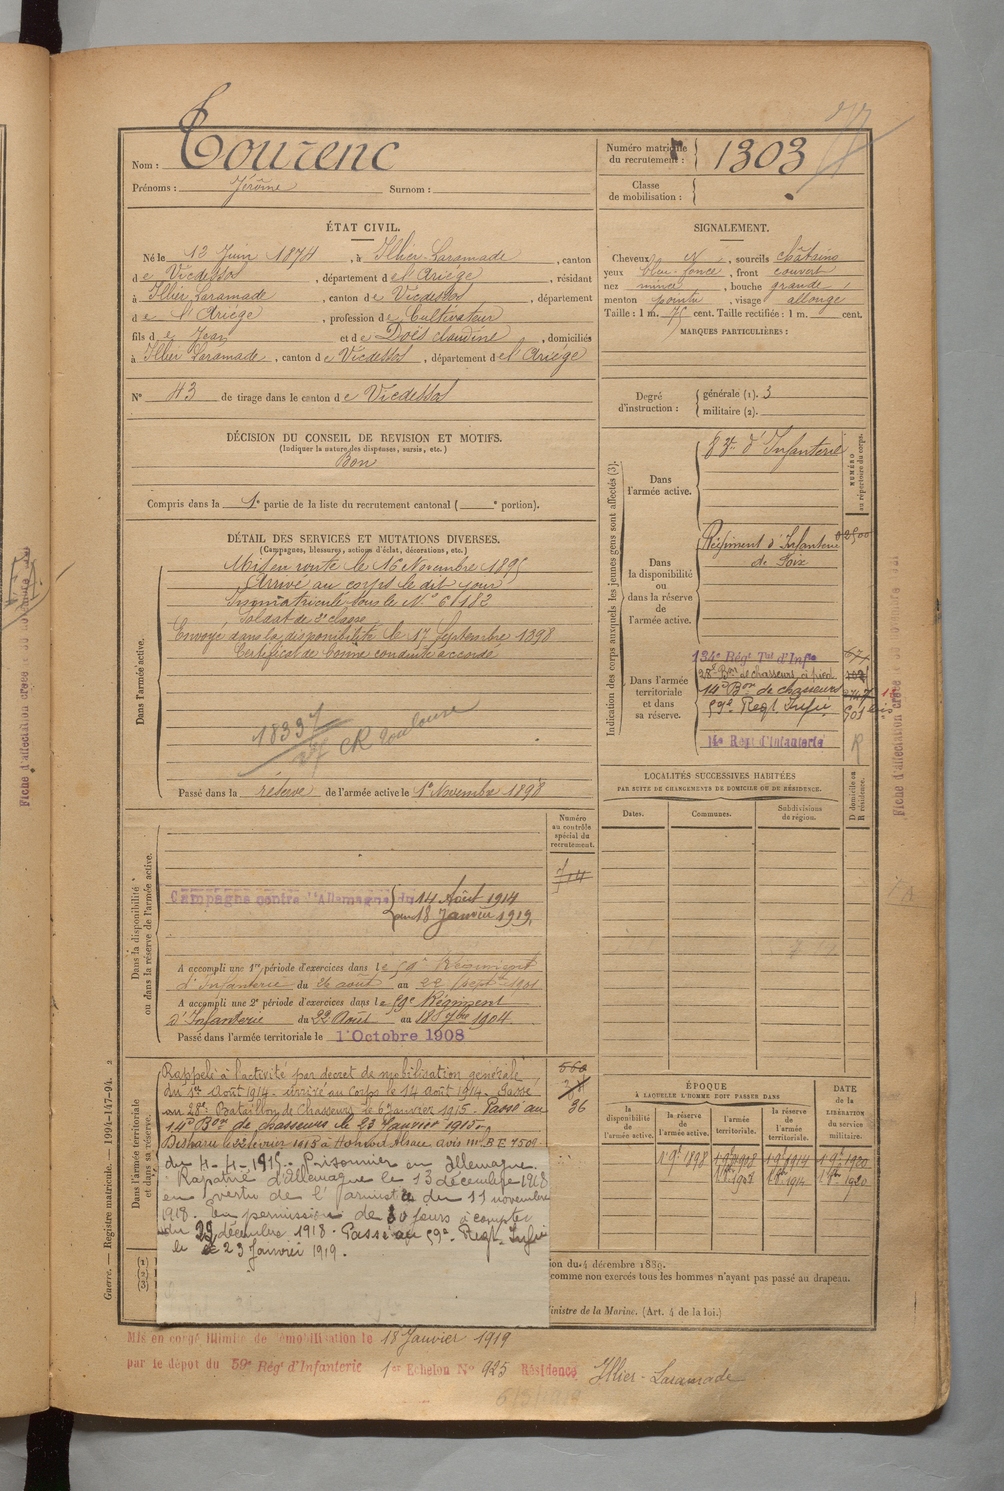 Nom : Tourenc
Prénoms : Jérôme Surnom :
Numéro matricule du recrutement : 1303
Classe de mobilisation :
ÉTAT CIVIL.
Né le 12 Juin 1874, à Illier-Laramade, canton
de Vicdessos, département de l'Ariège, résidant
à Illier Laramade, canton de Vicdessos, département
de l'Ariège, profession de Cultivateur
fils de Jean et de Doës claudine, domiciliés
à Illier Laramade, canton de Vicdessos, département de l'Ariège
N° 43 de tirage dans le canton de Vicdessos
SIGNALEMENT.
Cheveux N, sourcils châtains
yeux bleu foncé, front couvert
nez mince, bouche grande,
menton pointu, visage allongé
Taille : 1 m. 75 cent. Taille rectifiée : 1 m. cent.
MARQUES PARTICULIÈRES :
Degré d'instruction : générale (1). 3
militaire (2).
DÉCISION DU CONSEIL DE REVISION ET MOTIFS.
(Indiquer la nature des dispenses, sursis, etc.)
Bon
Compris dans la 1e partie de la liste du recrutement cantonal ( e portion).
DÉTAIL DES SERVICES ET MUTATIONS DIVERSES.
(Campagnes, blessures, actions d'éclat, décorations, etc.)
Dans l'armée active.
Mis en route le 16 Novembre 1895
Arrivé au corps le dit jour
Immatriculé sous le N° 6182
Soldat de 2e classe
Envoyé dans la disponibilité le 17 Septembre 1898
Certificat de bonne conduite accordé
CR Toulouse
Passé dans la réserve de l'armée active le 1er Novembre 1898
Indication des corps auxquels les jeunes gens sont affectés (3).
NUMÉRO au répertoire du corps.
Dans l'armée active.
d'Infanterie
Dans la disponibilité ou dans la réserve de l'armée active.
Régiment d'Infanterie
de Foix
Dans l'armée territoriale et dans sa réserve.
134e Régt Tal d'Infie
28e Bon de chasseurs à pied
14e Bon de chasseurs
59e Regt Infie
14e Regt d'Infanterie
R
LOCALITÉS SUCCESSIVES HABITÉES
PAR SUITE DE CHANGEMENTS DE DOMICILE OU DE RÉSIDENCE.
D domicile ou R résidence.
Dates. Communes. Subdivisions de région.
Dans la disponibilité ou dans la réserve de l'armée active.
Numéro au contrôle spécial du recrutement.
Campagne contre l'Allemagne du 14 Août 1914
au 18 Janvier 1919.
A accompli une 1re période d'exercices dans le 59e Régiment
d'Infanterie du 26 août au 22 Sept 1901
A accompli une 2e période d'exercices dans le 59e Régiment
d'Infanterie du 22 Août au 18 7bre 1904.
Passé dans l'armée territoriale le 1 Octobre 1908
Dans l'armée territoriale et dans sa réserve.
Rappelé à l'activité par décret de mobilisation générale
du 1er Août 1914 - arrivé au Corps le 14 Août 1914. Passé
au 28e Bataillon de Chasseurs le 6 Janvier 1915. Passé au
14e Bon de chasseurs le 23 Janvier 1915
Disparu le 22 février 1915 à Alsace avis M. B E 7509
du 4-4-1915. Prisonnier en Allemagne.
Rapatrié d'Allemagne le 13 décembre 1918
en vertu de l'armistice du 11 novembre
1918. En permission de 30 jours à compter
du 23 décembre 1918. Passé au 59e Regt Infie
le 23 Janvier 1919.
36
ÉPOQUE
À LAQUELLE L'HOMME DOIT PASSER DANS
DATE de la LIBÉRATION du service militaire.
la disponibilité de l'armée active. la réserve de l'armée active. l'armée territoriale. la réserve de l'armée territoriale.
1 9bre 1898 1 9bre 1908 1 9bre 1914 1 9bre 1920
1 8bre 1908 1 8bre 1914 1 8bre 1920
ion du 4 décembre 1889.
comme non exercés tous les hommes n'ayant pas passé au drapeau.
inistre de la Marine. (Art. 4 de la loi.)
Guerre. — Registre matricule. — 1994-147-94. 2
Mis en congé illimité de démobilisation le 18 Janvier 1919
par le dépôt du 59e Régt d'Infanterie 1er Echelon N° 925 Résidence Illier-Laramade